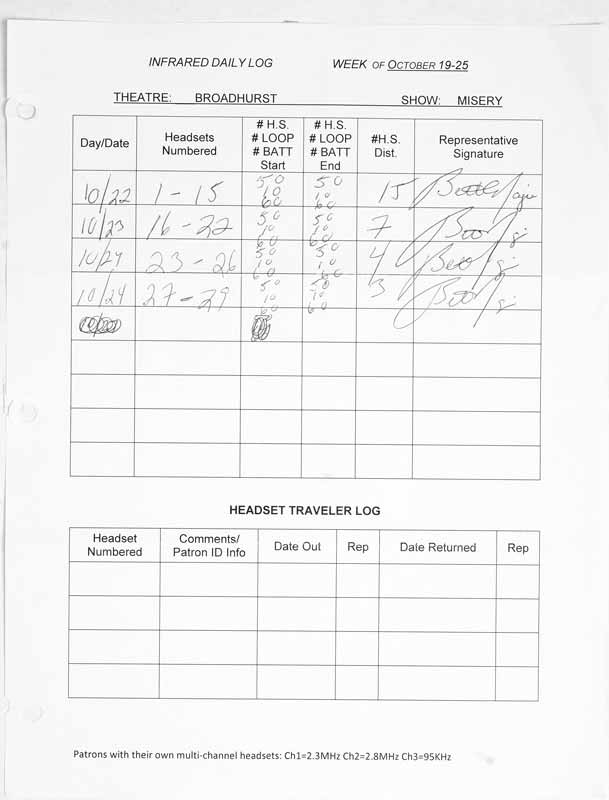 INFRARED DAILY LOG WEEK OF OCTOBER 19-25
THEATRE: BROADHURST SHOW: MISERY
Day/Date
Headsets
Numbered
# H.S.
# LOOP
# BATT
Start
# H.S.
# LOOP
# BATT
End
#H.S.
Dist.
Representative
Signature
10/22 1-15 50 10 60 50 10 60 15
10/23 16-22 50 10 60 50 10 60 7
10/24 23-26 50 10 60 50 10 60 4
10/24 27-29 50 10 60 50 10 60 3
HEADSET TRAVELER LOG
Headset
Numbered
Comments/
Patron ID Info
Date Out
Rep
Date Returned
Rep
Patrons with their own multi-channel headsets: Ch1=2.3MHz Ch2=2.8MHz Ch3=95KHz